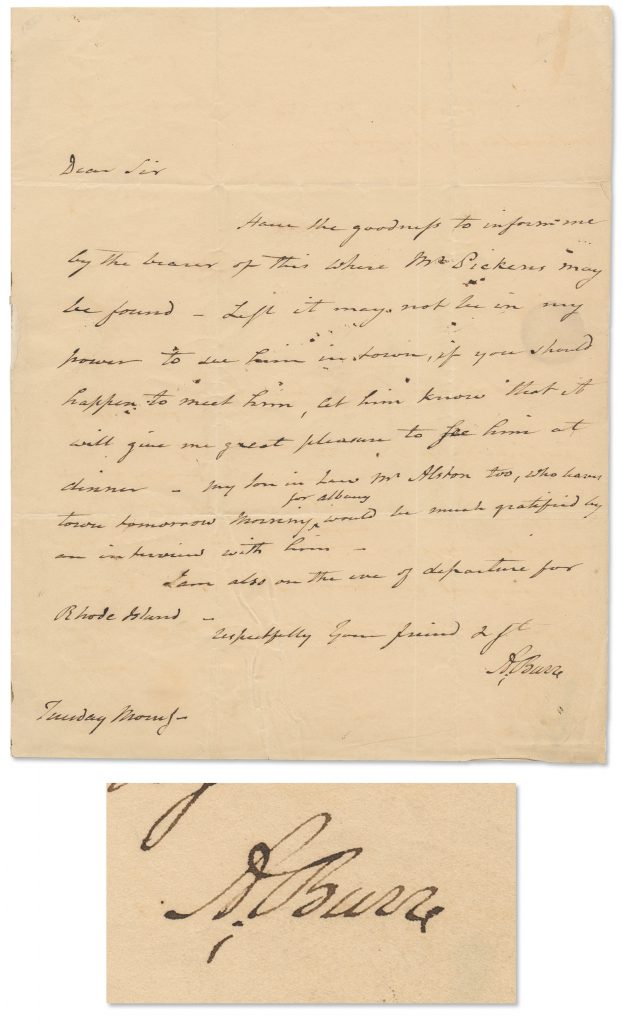 Dear Sir
Have the goodness to inform me
by the bearer of this where Mr Pickens may
be found – Lest it may not be in my
power to see him in town, if you should
happen to meet him, let him know that it
will give me great pleasure to see him at
dinner – my Son in Law Mr Alston too, who leaves
for albany
town tomorrow Morning ‸ would be much gratified by
an interview with him –
I am also on the eve of departure for
Rhode Island –
respectfully Your friend & St
A. Burr
Tuesday Morng –
A. Burr